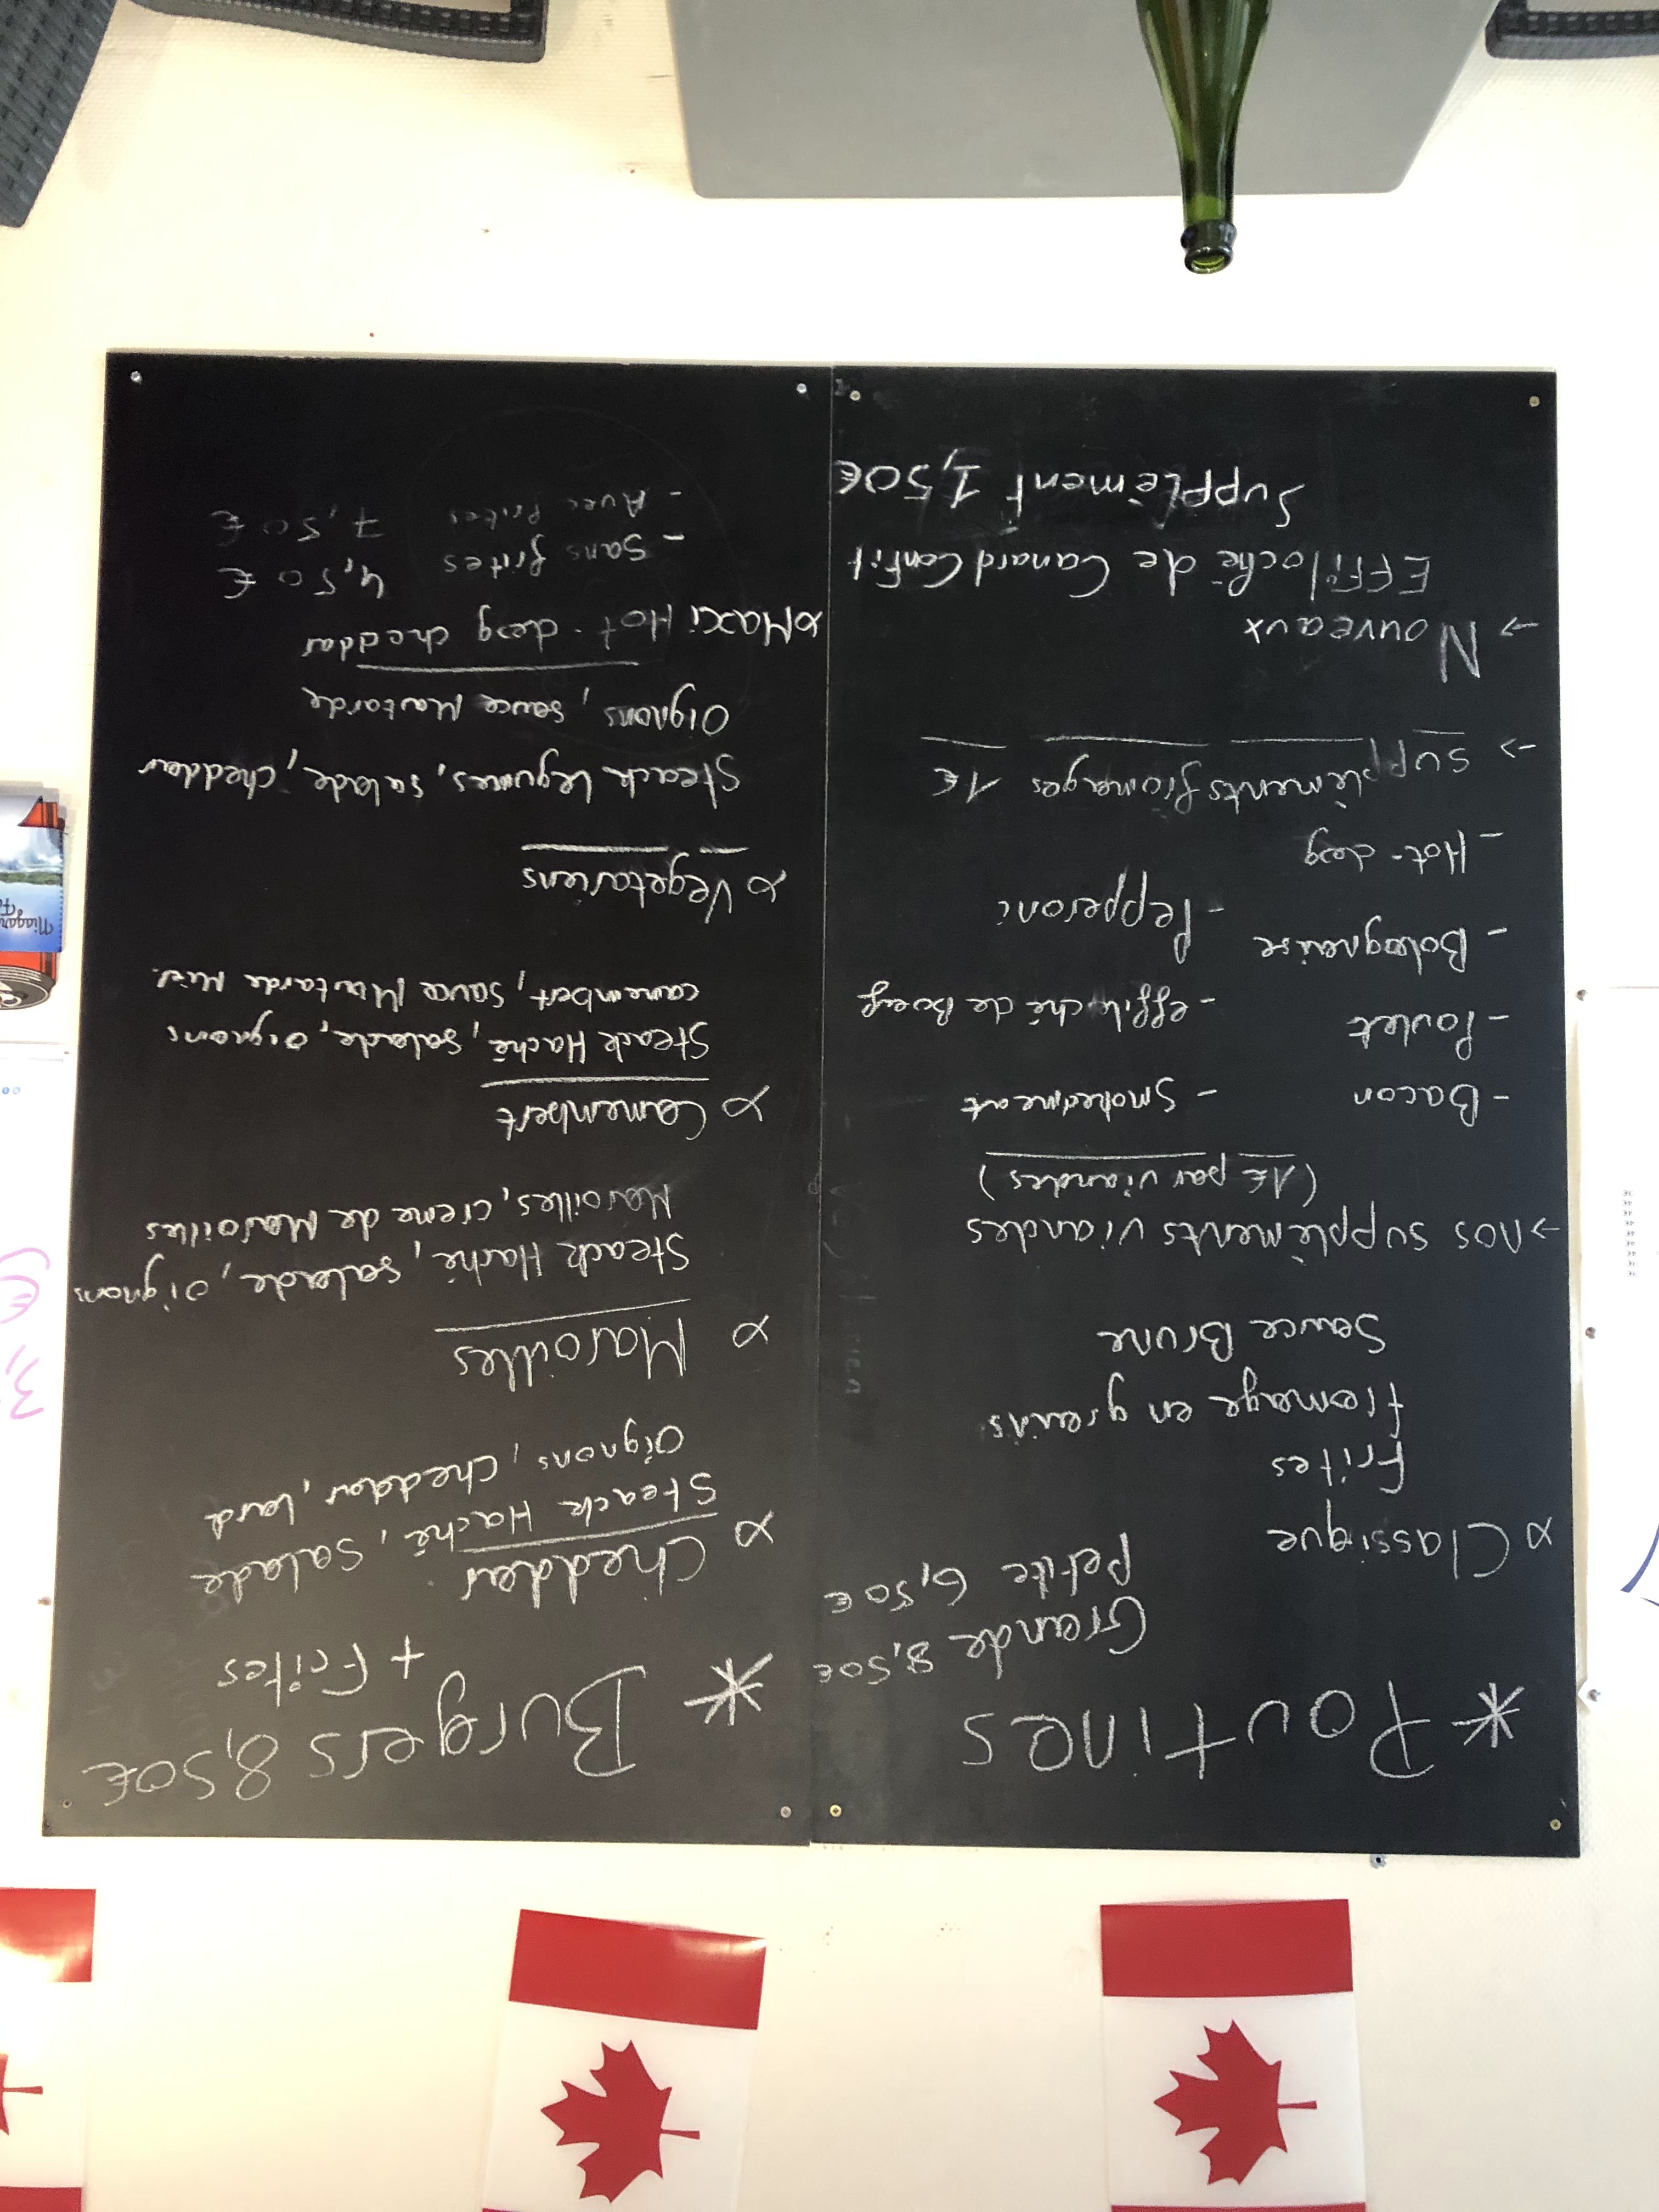 * Poutines
Grande 8,50€
Petite 6,50€
x Classique
Frites
fromage en grains
Sauce Brune
→ nos supplèments viandes
(1€ par viandes)
- Bacon - Smokedmeat
- Poulet - effiloché de Boeuf
- Bolognaise - Pepperoni
- Hot-dog
→ supplèments fromages 1€
→ Nouveaux
Effiloché de Canard Confit
Supplèment 1,50€
* Burgers 8,50€
+ Frites
x Cheddar
Steack Haché, salade
oignons, cheddar, lard
x Maroilles
Steack Haché, salade, oignons
Maroilles, crème de Maroilles
x Camembert
Steack Haché, salade, oignons
camembert, sauce Moutarde Miel.
x Vegetariens
Steack legumes, salade, cheddar
Oignons, sauce Moutarde
x Maxi Hot-dog cheddar
- Sans frites 4,50€
- Avec frites 7,50€
Niagara